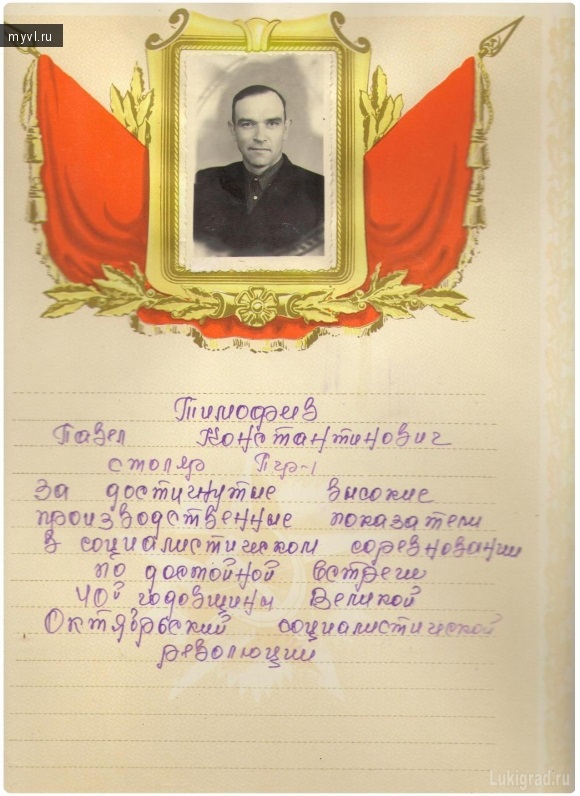 myvl.ru
Тимофеев
Павел Константинович
столяр Пчр-1
за достигнутые высокие
производственные показатели
в социалистическом соревновании
по достойной встрече
40й годовщины Великой
Октябрьский социалистической
революции
Lukigrad.ru